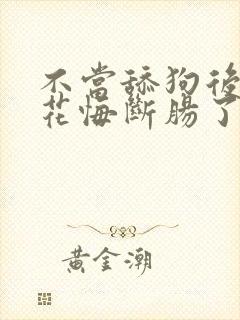 不當舔狗後
花悔斷腸了
黃金潮